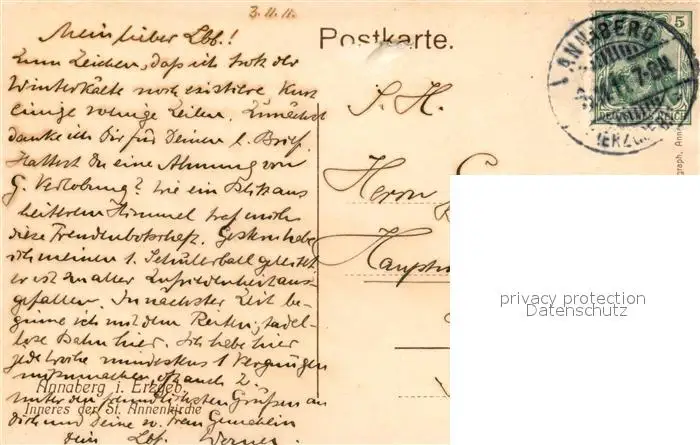 3. 11. 11.
Mein lieber Lbf.!
Zum Zeichen, daß ich trotz der
Winterkälte noch existiere kurz
einige wenige Zeilen. Zunächst
danke ich Dir für Deinen l. Brief.
Hattest Du eine Ahnung von
G. Verlobung? Wie ein Blitz aus
heiterem Himmel traf mich
diese Freudenbotschaft. Gestern habe
ich meinen 1. Schülerball geleitet
er ist zu aller Zufriedenheit aus-
gefallen. In nächster Zeit be-
ginne ich mit dem Reiten; tadel-
lose Bahn hier. Ich habe hier
jede Woche mindestens 1 Vergnügen
mitzumachen, oft auch 2.
Unter den freundlichsten Grüßen an
Dich und Deine w. Frau Gemahlin
Dein Lbf. Werner.
Annaberg i. Erzgeb.
Inneres der St. Annenkirche
Postkarte.
S. H.
Herrn
ANNABERG
7-8N
(ERZGEB.)
5
DEUTSCHES REICH
privacy protection
Datenschutz